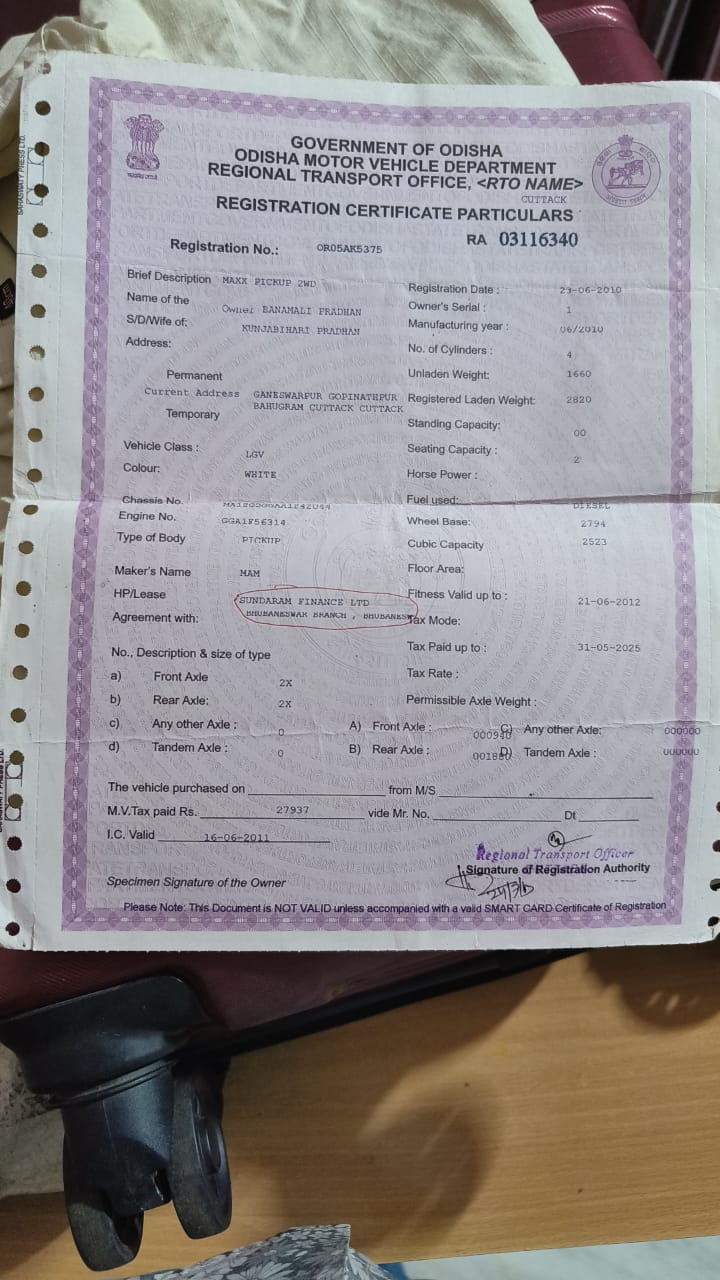 GOVERNMENT OF ODISHA
ODISHA MOTOR VEHICLE DEPARTMENT
REGIONAL TRANSPORT OFFICE, <RTO NAME>
CUTTACK
REGISTRATION CERTIFICATE PARTICULARS
RA 03116340
Registration No.: OR05AK5375
Brief Description MAXX PICKUP 2WD
Name of the Owner BANAMALI PRADHAN
S/D/Wife of: KUNJABIHARI PRADHAN
Address:
Permanent
Current Address GANESWARPUR GOPINATHPUR
BAHUGRAM CUTTACK CUTTACK
Temporary
Vehicle Class : LGV
Colour: WHITE
Chassis No.
Engine No. GGA1F56314
Type of Body PICKUP
Maker's Name MAM
HP/Lease SUNDARAM FINANCE LTD
BHUBANESWAR BRANCH , BHUBANESW
Agreement with:
Registration Date : 23-06-2010
Owner's Serial : 1
Manufacturing year : 06/2010
No. of Cylinders : 4
Unladen Weight: 1660
Registered Laden Weight: 2820
Standing Capacity: 00
Seating Capacity : 2
Horse Power :
Fuel used: DIESEL
Wheel Base: 2794
Cubic Capacity 2523
Floor Area:
Fitness Valid up to : 21-06-2012
Tax Mode:
Tax Paid up to : 31-05-2025
Tax Rate :
Permissible Axle Weight :
No., Description & size of type
a) Front Axle 2X
b) Rear Axle: 2X
c) Any other Axle : 0
d) Tandem Axle : 0
A) Front Axle : 000940 C) Any other Axle: 000000
B) Rear Axle : 001880 D) Tandem Axle : 000000
The vehicle purchased on from M/S
M.V.Tax paid Rs. 27937 vide Mr. No. Dt
I.C. Valid 16-06-2011
Regional Transport Officer
Signature of Registration Authority
Specimen Signature of the Owner
Please Note: This Document is NOT VALID unless accompanied with a valid SMART CARD Certificate of Registration